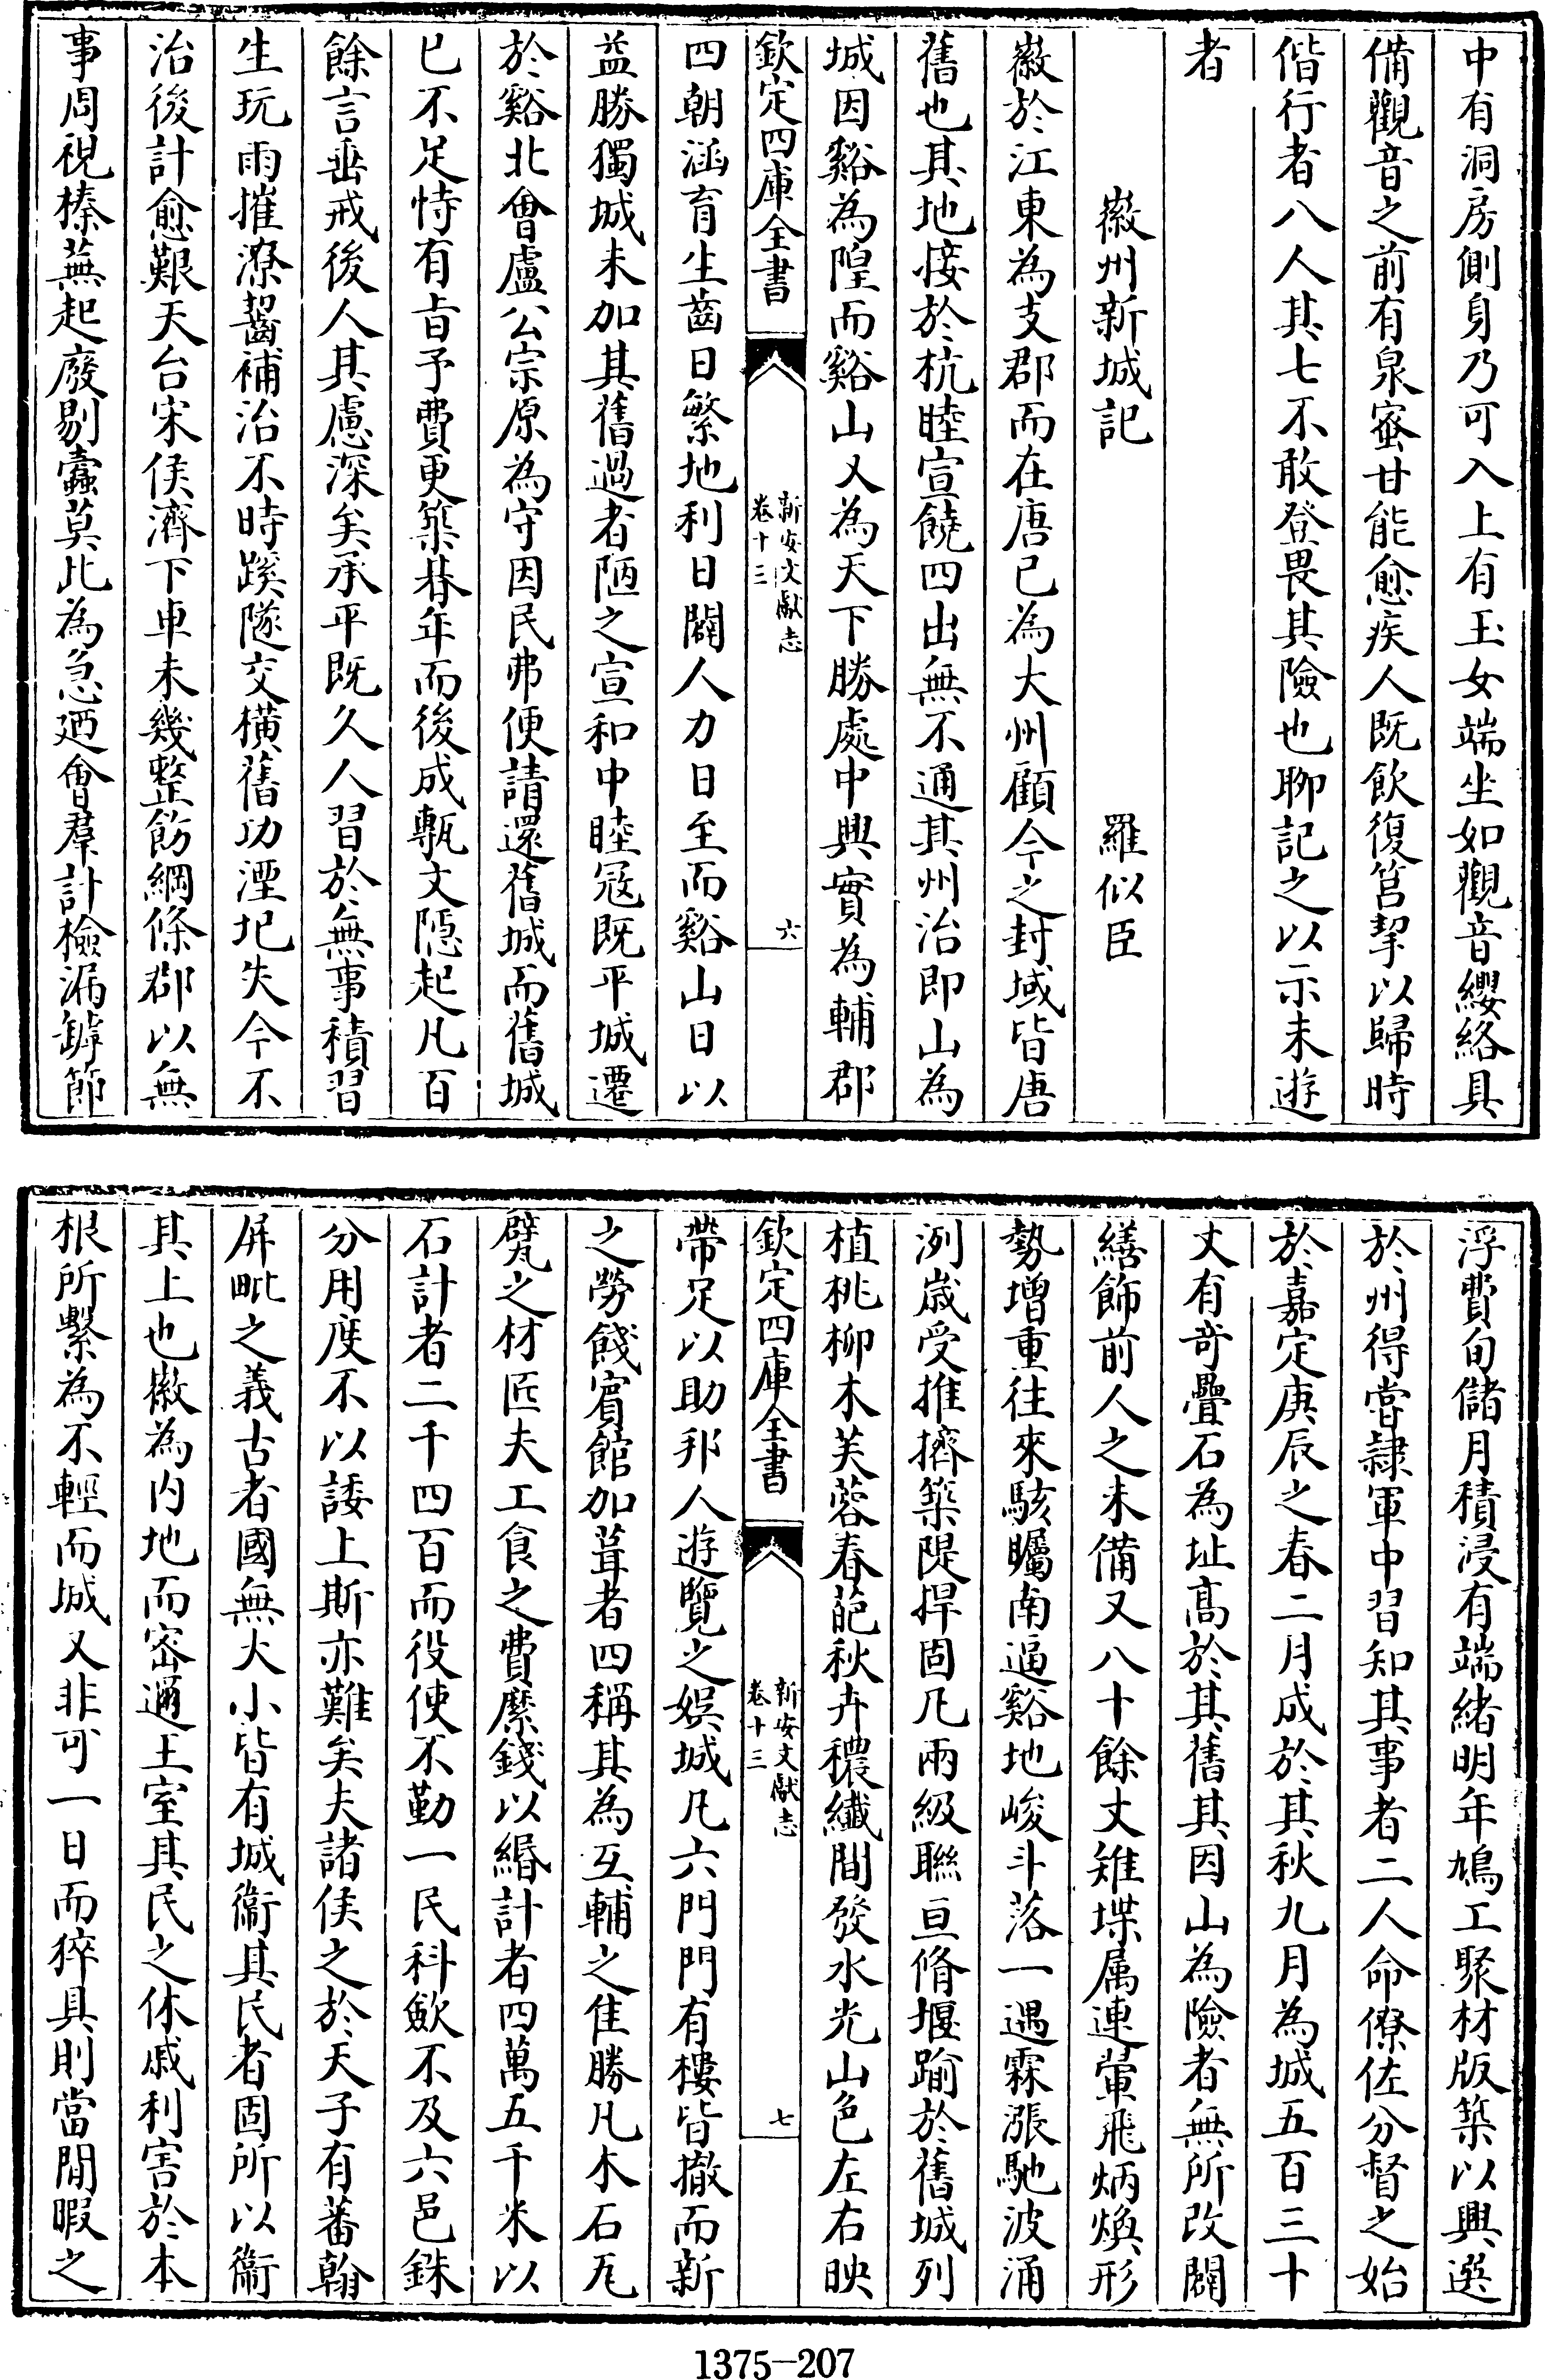 中有洞房側身乃可入上有玉女端坐如觀音纓絡具
備觀音之前有泉蜜甘能愈疾人既飲復筥挈以歸時
偕行者八人其七不敢登畏其險也聊記之以示未遊
者
徽州新城記 羅似臣
徽於江東為支郡而在唐已為大州顧今之封域皆唐
舊也其地接於杭睦宣饒四出無不通其州治即山為
城因谿為隍而谿山又為天下勝處中興實為輔郡
欽定四庫全書 新安文獻志 卷十三 六
四朝涵育生齒日繁地利日闢人力日至而谿山日以
益勝獨城未加其舊過者陋之宣和中睦冦既平城遷
於谿北會盧公宗原為守因民弗便請還舊城而舊城
已不足恃有旨予費更築朞年而後成甎文隠起凡百
餘言垂戒後人其慮深矣承平既久人習於無事積習
生玩雨摧潦齧補治不時蹊隧交横舊功湮圮失今不
治後計愈艱天台宋侯濟下車未幾整飭綱條郡以無
事周視榛蕪起廢剔蠹莫此為急廼會羣計檢漏罅節
浮費旬儲月積浸有端緒明年鳩工聚材版築以興選
於州得嘗隷軍中習知其事者二人命僚佐分督之始
於嘉定庚辰之春二月成於其秋九月為城五百三十
丈有竒疊石為址髙於其舊其因山為險者無所改闢
繕飾前人之未備又八十餘丈雉堞属連翬飛炳煥形
勢增重往來駭矚南逼谿地峻斗落一遇霖漲馳波涌
洌歲受推擠築隄捍固凡兩級聯亘脩堰踰於舊城列
植桃柳木芙蓉春葩秋卉穠纖間發水光山色左右映
欽定四庫全書 新安文獻志 卷十三 七
帶足以助邦人遊覽之娯城凡六門門有樓皆撤而新
之勞餞賔館加葺者四稱其為互輔之佳勝凡木石瓦
甓之材匠夫工食之費縻錢以緡計者四萬五千米以
石計者二千四百而役使不勤一民科歛不及六邑銖
分用度不以諉上斯亦難矣夫諸侯之於天子有蕃翰
屏毗之義古者國無大小皆有城衞其民者固所以衞
其上也徽為内地而密邇王室其民之休戚利害於本
根所繫為不輕而城又非可一日而猝具則當閒暇之
1375—207